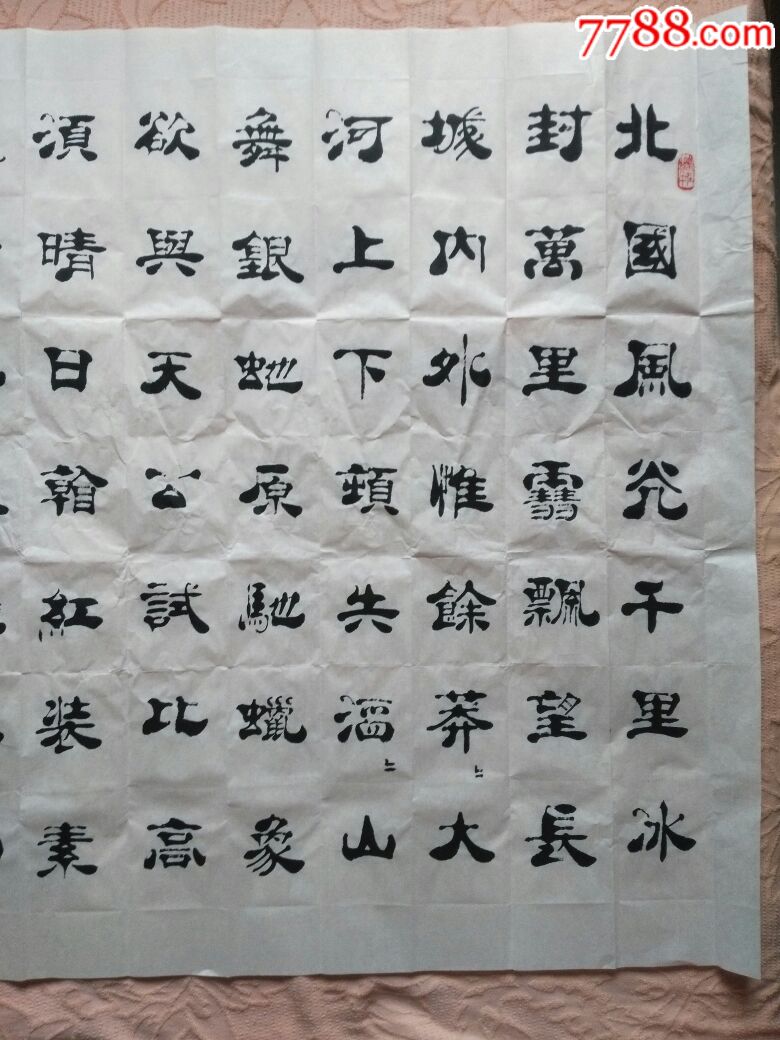 7788.com
北國風光千里冰
封萬里雪飄望長
城內外惟餘莽〻大
河上下頓失滔〻山
舞銀蛇原馳蠟象
欲與天公試比高
湏晴日看紅裝素